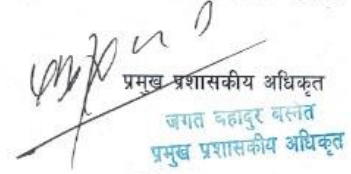 प्रमुख प्रशासकीय अधिकृत
जगत बहादुर बस्नेत
प्रमुख प्रशासकीय अधिकृत